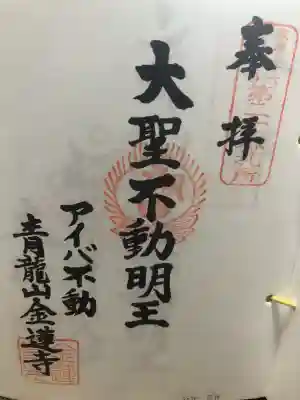 奉拝
大聖不動明王
アイバ不動
青龍山金蓮寺